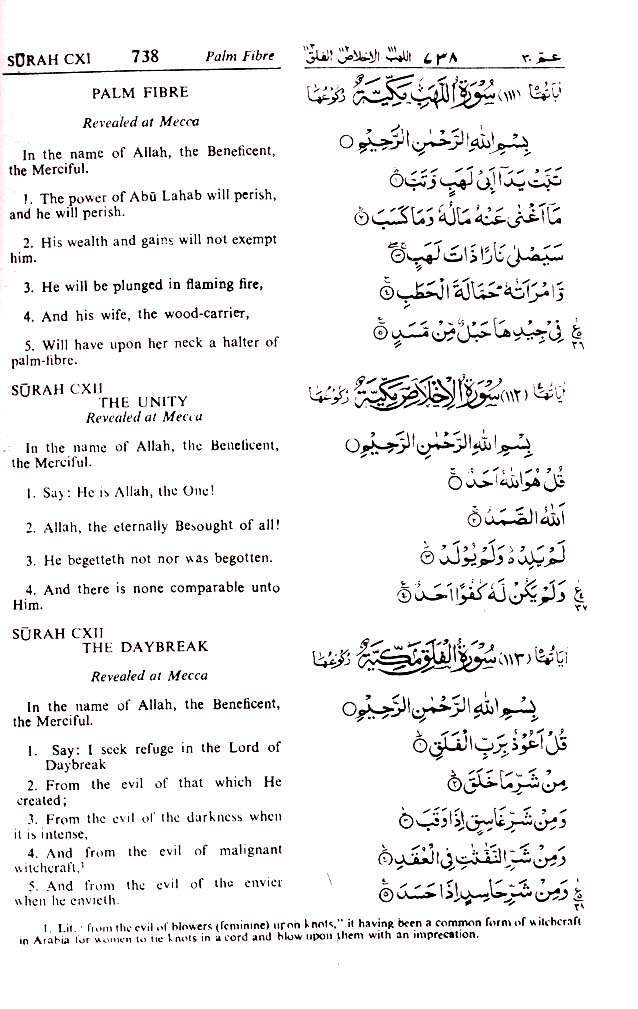 SŪRAH CXI 738 Palm Fibre
اللهب ١١١ الاخلاص ١١٢ الفلق ١١٣ ٧٣٨ عم ٣٠
PALM FIBRE
Revealed at Mecca
In the name of Allah, the Beneficent,
the Merciful.
1. The power of Abū Lahab will perish,
and he will perish.
2. His wealth and gains will not exempt
him.
3. He will be plunged in flaming fire,
4. And his wife, the wood-carrier,
5. Will have upon her neck a halter of
palm-fibre.
SŪRAH CXII
THE UNITY
Revealed at Mecca
In the name of Allah, the Beneficent,
the Merciful.
1. Say: He is Allah, the One!
2. Allah, the eternally Besought of all!
3. He begetteth not nor was begotten.
4. And there is none comparable unto
Him.
SŪRAH CXII
THE DAYBREAK
Revealed at Mecca
In the name of Allah, the Beneficent,
the Merciful.
1. Say: I seek refuge in the Lord of
Daybreak
2. From the evil of that which He
created;
3. From the evil of the darkness when
it is intense,
4. And from the evil of malignant
witchcraft,¹
5. And from the evil of the envier
when he envieth.
اٰيَاتُهَا (١١١) سُوْرَةُ اللَّهَبِ مَكِّيَّةٌ رُكُوْعُهَا
بِسْمِ اللهِ الرَّحْمٰنِ الرَّحِيْمِ
تَبَّتْ يَدَآ اَبِيْ لَهَبٍ وَّتَبَّ ١
مَآ اَغْنٰى عَنْهُ مَالُهٗ وَمَا كَسَبَ ٢
سَيَصْلٰى نَارًا ذَاتَ لَهَبٍ ٣
وَّامْرَاَتُهٗ حَمَّالَةَ الْحَطَبِ ٤
فِيْ جِيْدِهَا حَبْلٌ مِّنْ مَّسَدٍ ٥ ع ٣٦
اٰيَاتُهَا ٤ (١١٢) سُوْرَةُ الْاِخْلَاصِ مَكِّيَّةٌ رُكُوْعُهَا
بِسْمِ اللهِ الرَّحْمٰنِ الرَّحِيْمِ
قُلْ هُوَ اللهُ اَحَدٌ ١
اَللهُ الصَّمَدُ ٢
لَمْ يَلِدْ وَلَمْ يُوْلَدْ ٣
وَلَمْ يَكُنْ لَّهٗ كُفُوًا اَحَدٌ ٤ ع ٣٧
اٰيَاتُهَا (١١٣) سُوْرَةُ الْفَلَقِ مَكِّيَّةٌ رُكُوْعُهَا
بِسْمِ اللهِ الرَّحْمٰنِ الرَّحِيْمِ
قُلْ اَعُوْذُ بِرَبِّ الْفَلَقِ ١
مِنْ شَرِّ مَا خَلَقَ ٢
وَمِنْ شَرِّ غَاسِقٍ اِذَا وَقَبَ ٣
وَمِنْ شَرِّ النَّفّٰثٰتِ فِي الْعُقَدِ ٤
وَمِنْ شَرِّ حَاسِدٍ اِذَا حَسَدَ ٥ ع ٣٨
1. Lit. "from the evil of blowers (feminine) upon knots," it having been a common form of witchcraft
in Arabia for women to tie knots in a cord and blow upon them with an imprecation.